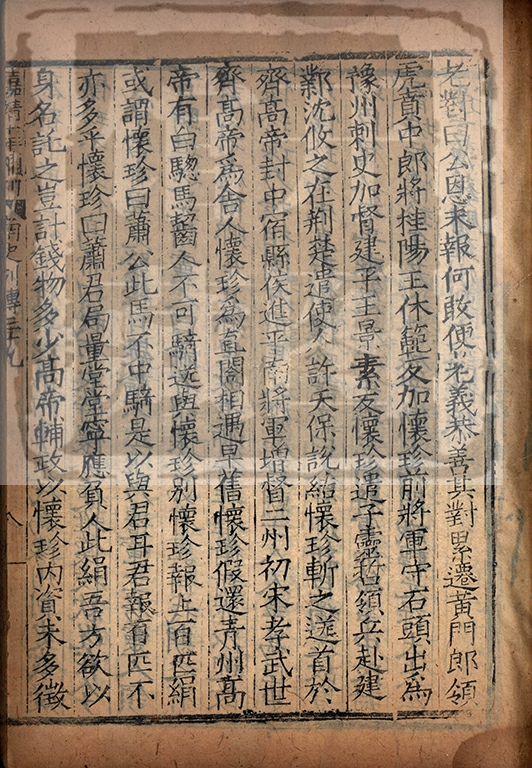 老對曰公恩未報何敢便老義恭善其對累遷黃門郎領
虎賁中郎將桂陽王休範反加懷珍前將軍守石頭出爲
豫州刺史加督建平王景素反懷珍遣子靈哲領兵赴建
鄴沈攸之在荆楚遣使人許天保說結懷珍斬之送首於
齊高帝封中宿縣侯進平南將軍增督二州初宋孝武世
齊高帝爲舍人懷珍爲直閤相遇早舊懷珍假還青州高
帝有白騘馬齧人不可騎送與懷珍別懷珍報上百匹絹
或謂懷珍曰蕭公此馬不中騎是以與君耳君報百匹不
亦多乎懷珍曰蕭君局量堂堂寧應負人此絹吾方欲以
身名託之豈計錢物多少高帝輔政以懷珍內資未多徵
嘉靖十年刊 南史列傳三十九
八